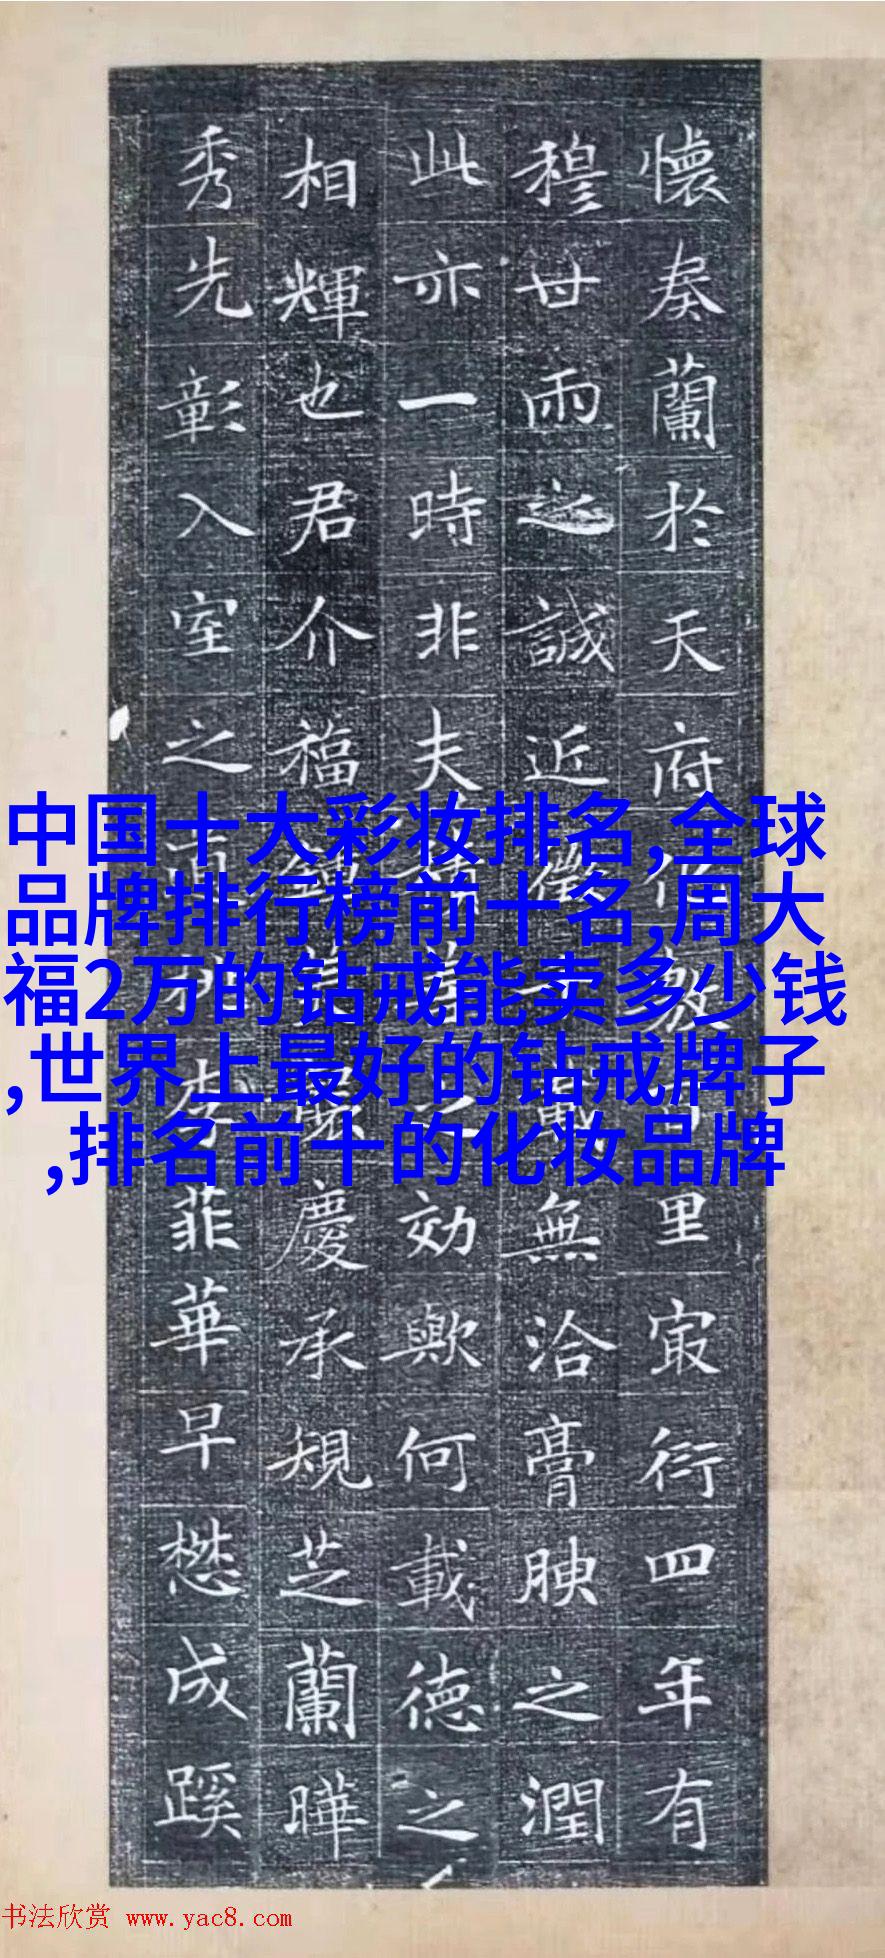 懷奏蘭於天府里冣衍四年有
穆世雨之誠近徵無洽膏腴之潤
此亦一時非夫効歟何載德之
相輝也君介福慶承規芝蘭曄
秀先彰入室之李菲華早懋成蹊
中国十大彩妆排名,全球
品牌排行榜前十名,周大
福2万的钻戒能卖多少钱
,世界上最好的钻戒牌子
,排名前十的化妆品牌
书法欣赏 www.yac8.com